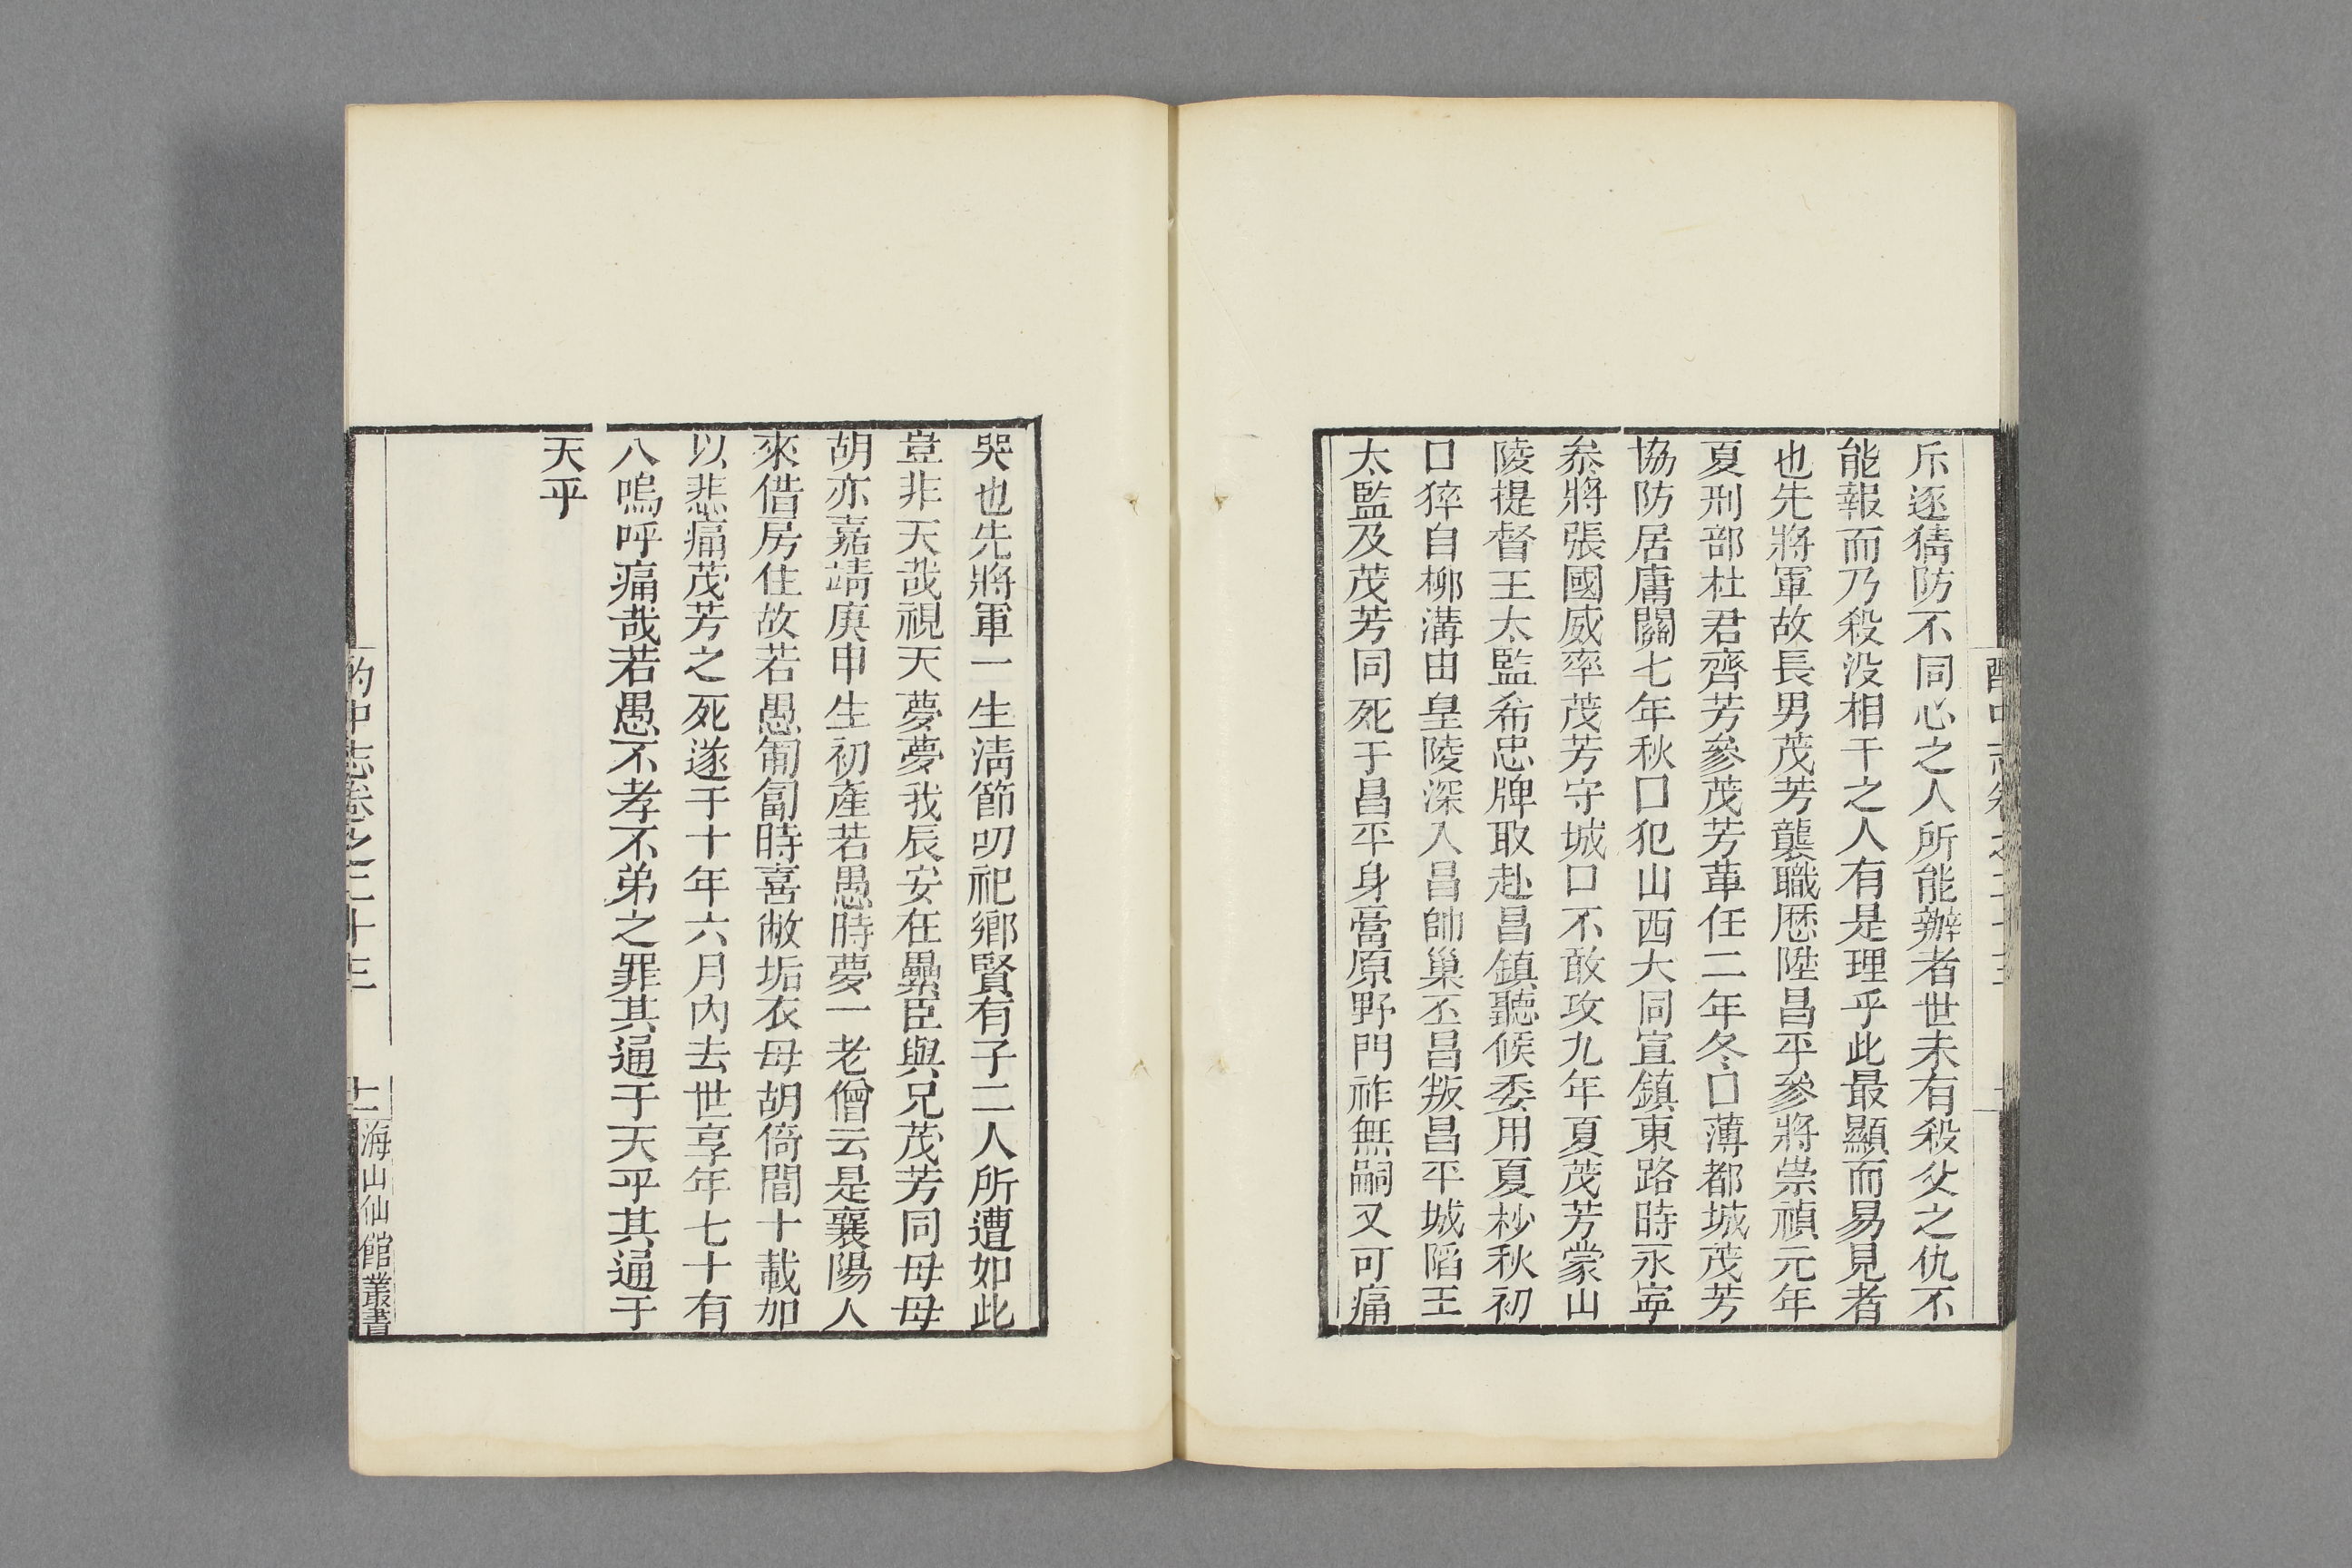 斥逐猜防不同心之人所能辦者世未有殺父之仇不
能報而乃殺没相干之人有是理乎此最顯而易見者
也先將軍故長男茂芳襲職歴陞昌平參將崇禎元年
夏刑部杜君齊芳參茂芳革任二年冬口薄都城茂芳
協防居庸關七年秋口犯山西大同宣鎮東路時永寧
叅將張國威率茂芳守城口不敢攻九年夏茂芳蒙山
陵提督王太監希忠牌取赴昌鎮聽候委用夏杪秋初
口猝自柳溝由皇陵深入昌帥巢丕昌叛昌平城陷王
太監及茂芳同死于昌平身膏原野門祚無嗣又可痛
哭也先將軍一生清節叨祀鄉賢有子二人所遭如此
豈非天哉視天夢夢我辰安在纍臣與兄茂芳同母母
胡亦嘉靖庚申生初產若愚時夢一老僧云是襄陽人
來借房住故若愚匍匐時喜敝垢衣母胡倚閭十載加
以悲痛茂芳之死遂于十年六月內去世享年七十有
八嗚呼痛哉若愚不孝不弟之罪其通于天乎其通于
天乎
酌中志卷之二十三
十一
海山仙館叢書